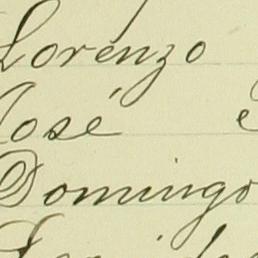 Lorenzo
José
Domingo